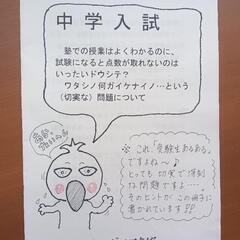 中学入試
塾での授業はよくわかるのに、
試験になると点数が取れないのは
いったいドウシテ？
ワタシノ何ガイケナイノ…という
(切実な)問題について
※これ、「受験生あるある」
ですよね～♪
とっても切実で深刻
な問題ですよ…
そのヒントがこの冊子に
書かれています!!